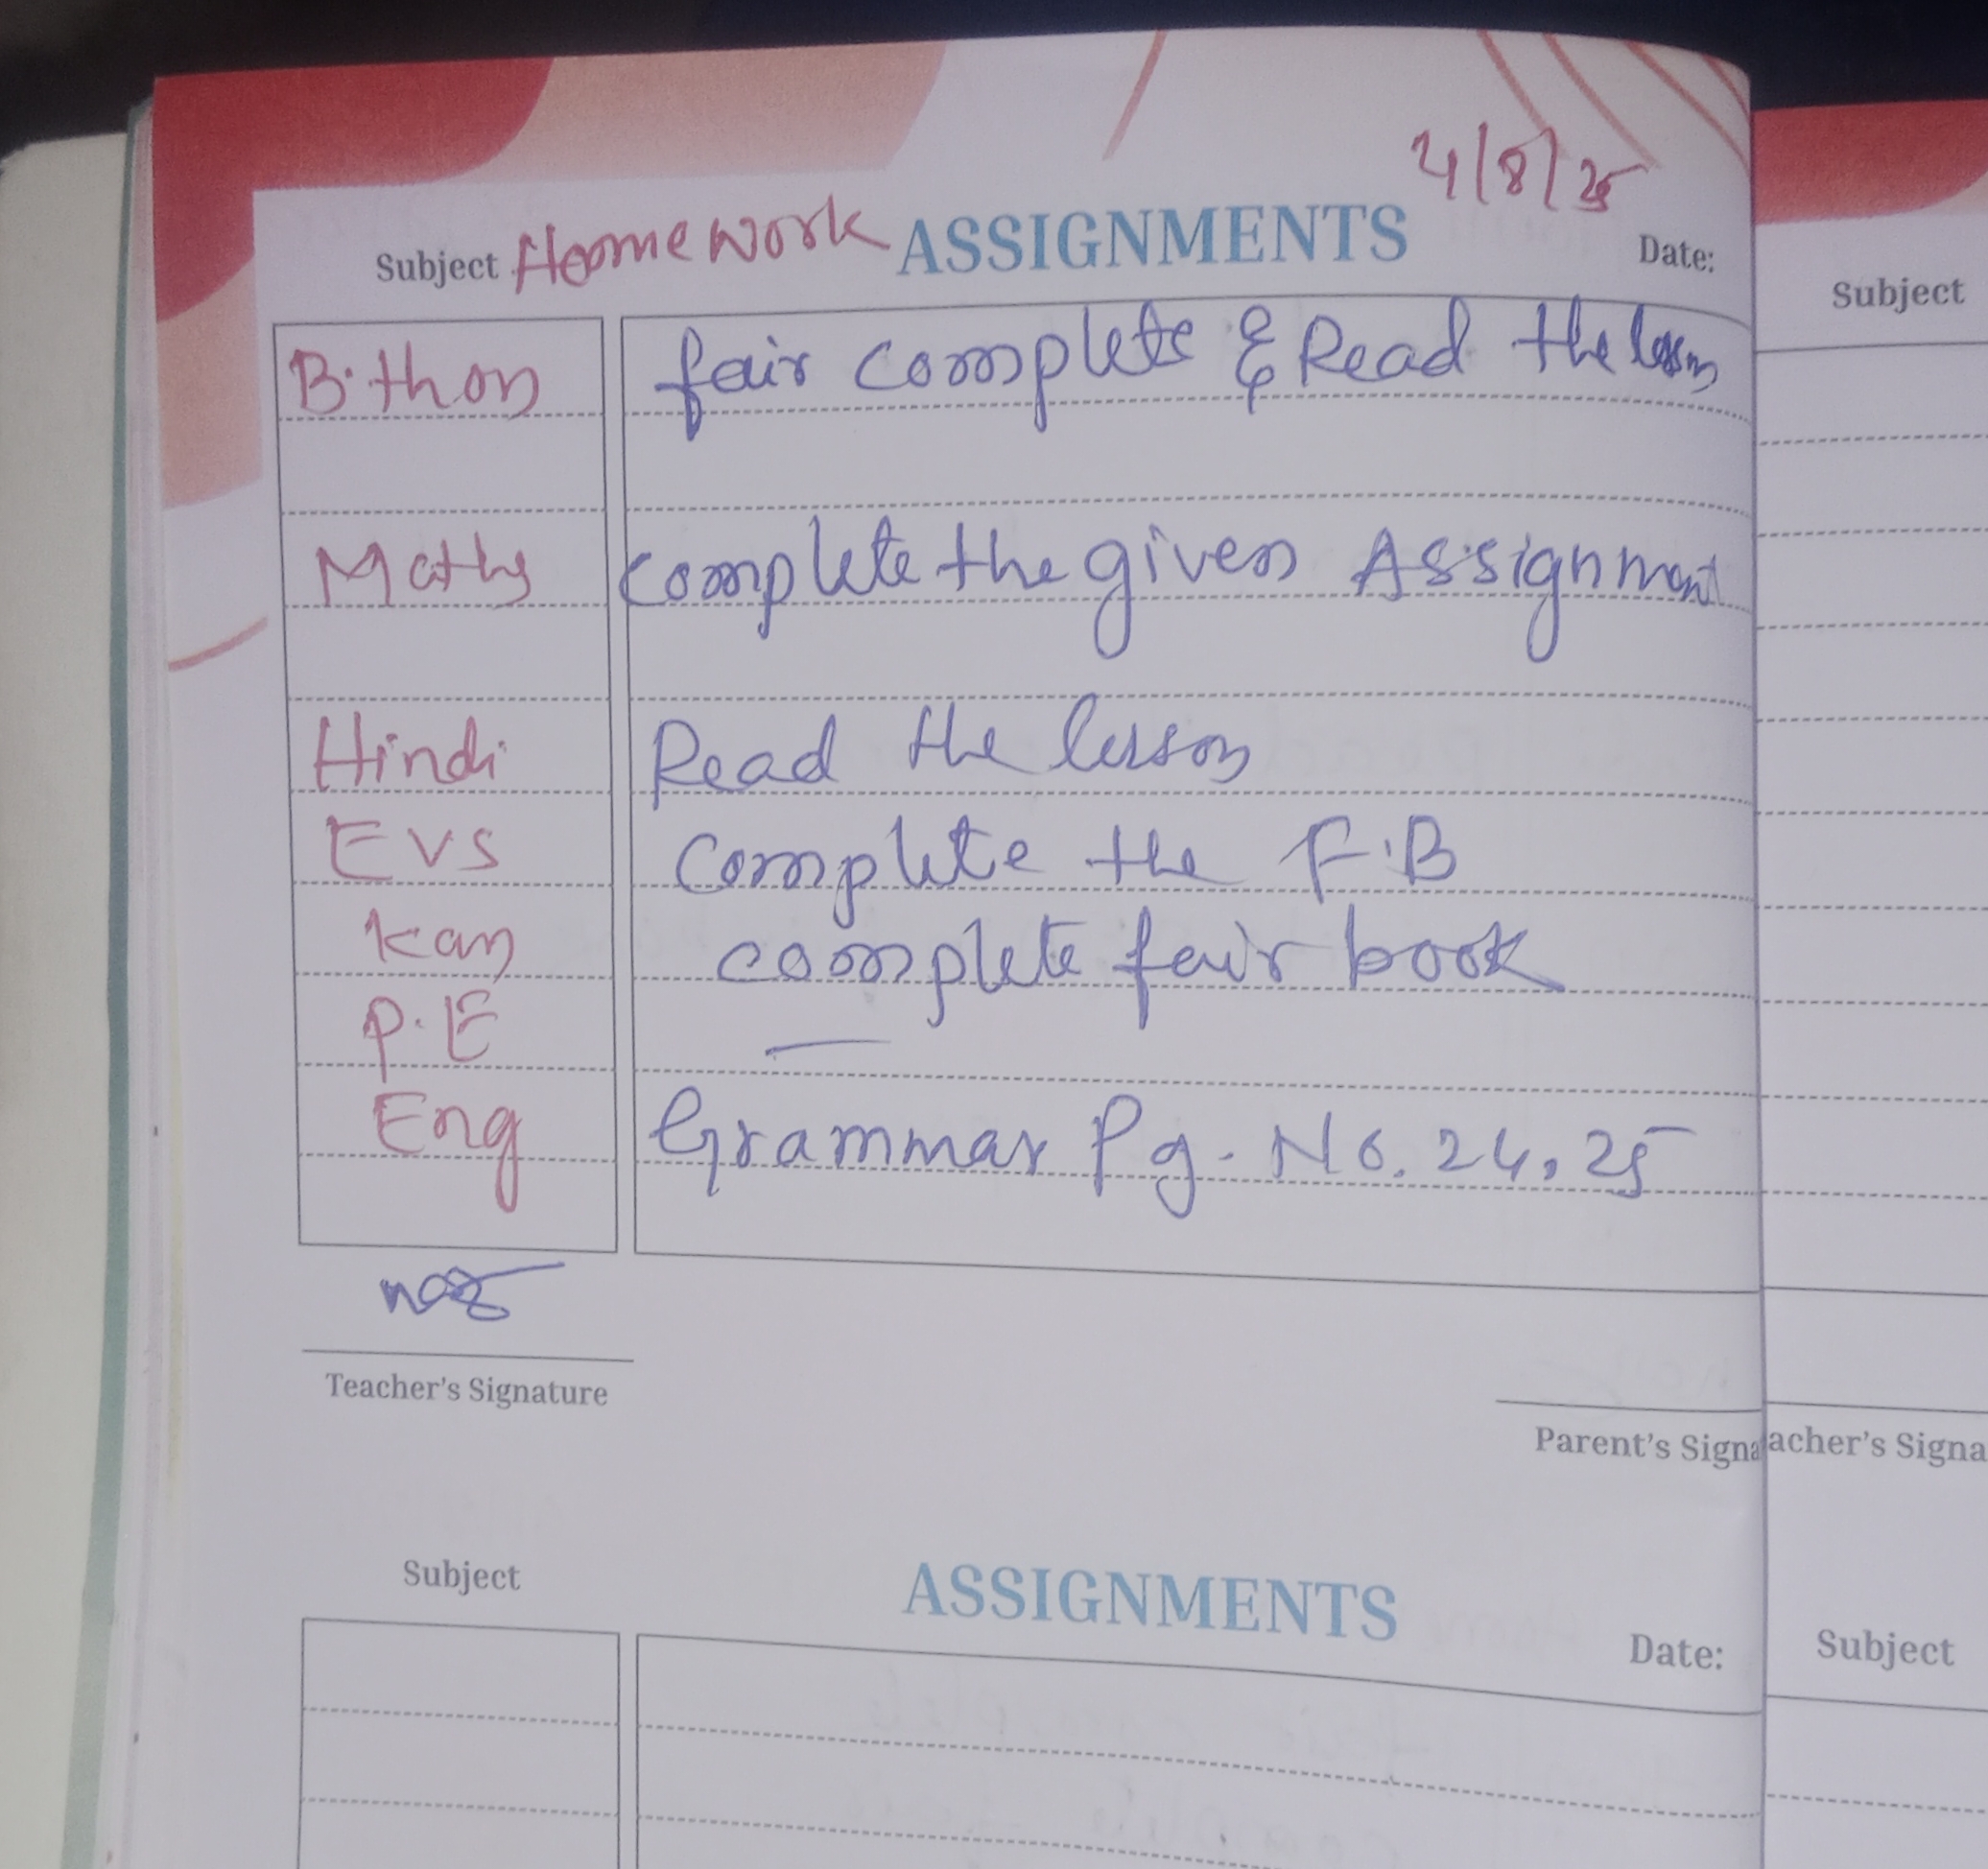 4/8/25
Subject Homework ASSIGNMENTS Date:
Subject
B.thon fair complete & Read the lesson
Maths complete the given Assignment
Hindi Read the lesson
EVS Complete the F.B
Kan complete fair book
P.E —
Eng Grammar Pg. No. 24, 25
Teacher's Signature
Parent's Signa
acher's Signa
Subject ASSIGNMENTS Date:
Subject